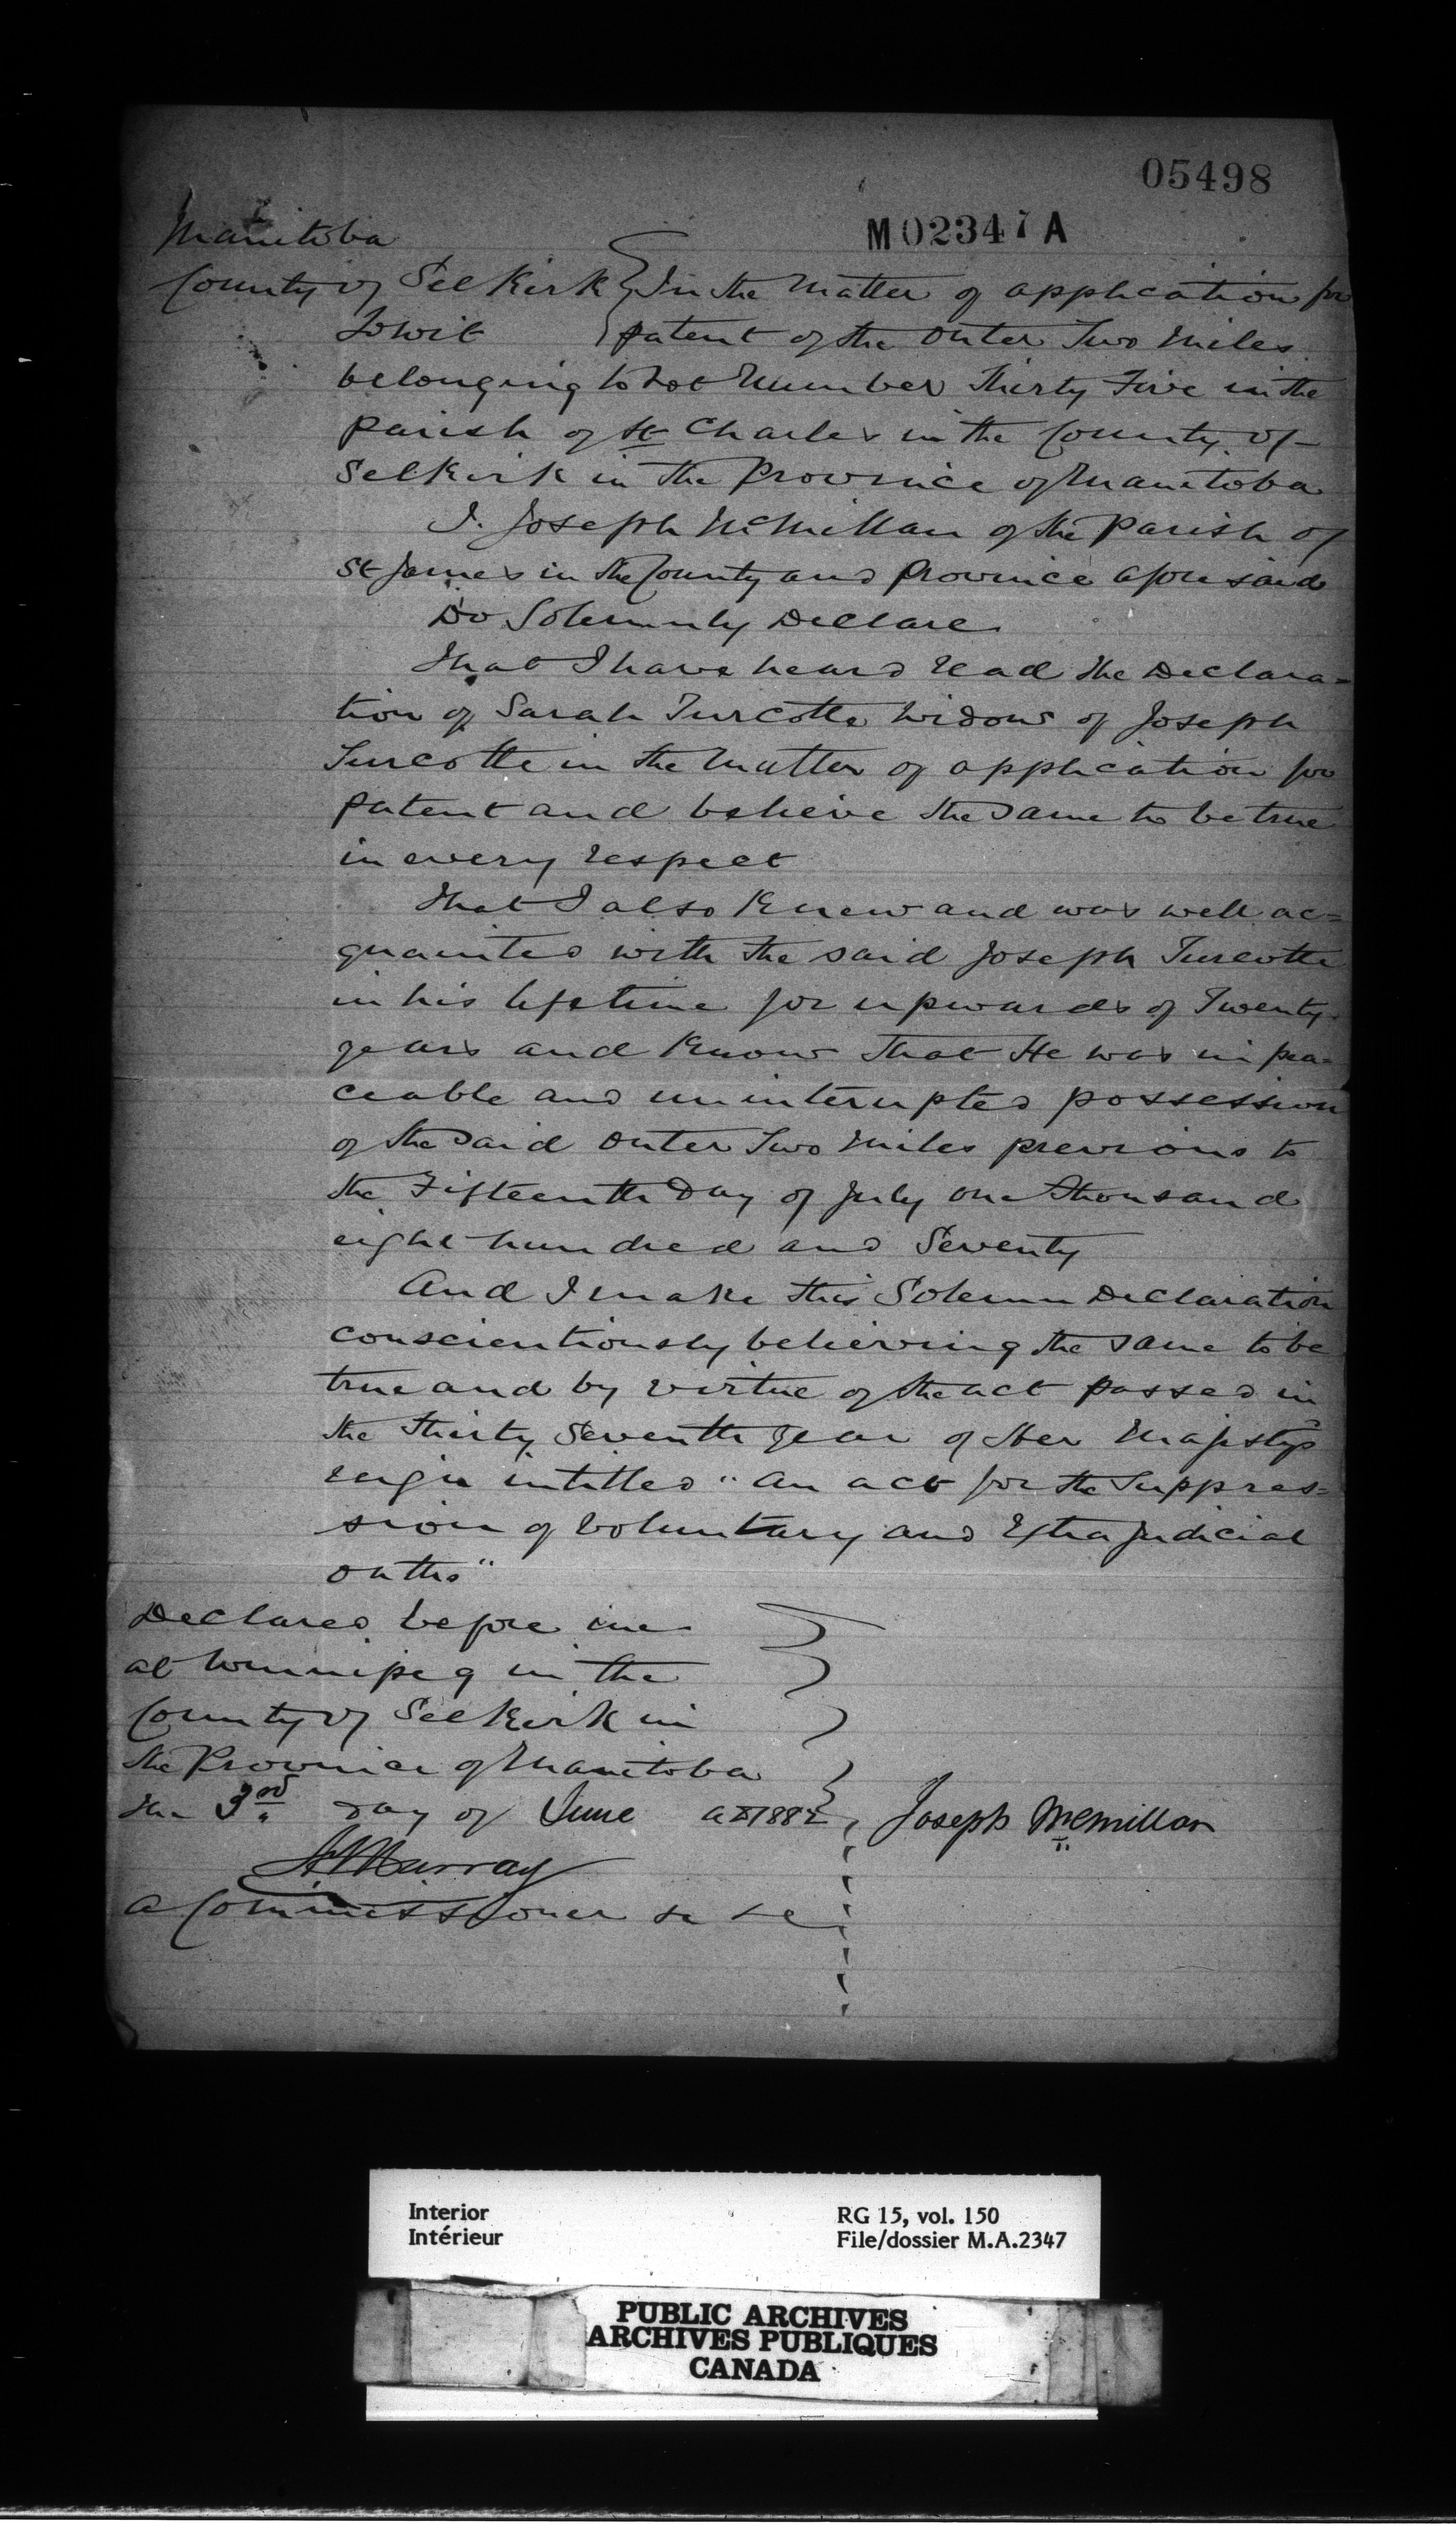 05498
M02347A
Manitoba
County of Selkirk } In the Matter of application for
To wit } patent of the Outer Two Miles
belonging to Lot Number Thirty Five in the
parish of St Charles in the County of
Selkirk in the Province of Manitoba
I. Joseph McMillan of the Parish of
St James in the County and Province aforesaid
Do Solemnly Declare
that I have heard read the Declara=
tion of Sarah Turcotte widow of Joseph
Turcotte in the Matter of application for
patent and believe the same to be true
in every respect
that I also Knew and was well ac=
quainted with the said Joseph Turcotte
in his lifetime for upwards of Twenty
years and Know that He was in pea=
ceable and uninterupted possession
of the said Outer Two Miles previous to
the Fifteenth Day of July one thousand
eight hundred and Seventy
And I make this Solemn Declaration
conscientiously believing the same to be
true and by virtue of the act passed in
the thirty Seventh year of Her Majestys
reign intitled "An act for the Suppres=
sion of Voluntary and Extra Judicial
oaths"
Declared before me
at Winnipeg in the
County of Selkirk in
the Province of Manitoba
the 3rd day of June AD 1882 Joseph McMillan
Murray
a Commissioner
Interior RG 15, vol. 150
Intérieur File/dossier M.A.2347
PUBLIC ARCHIVES
ARCHIVES PUBLIQUES
CANADA